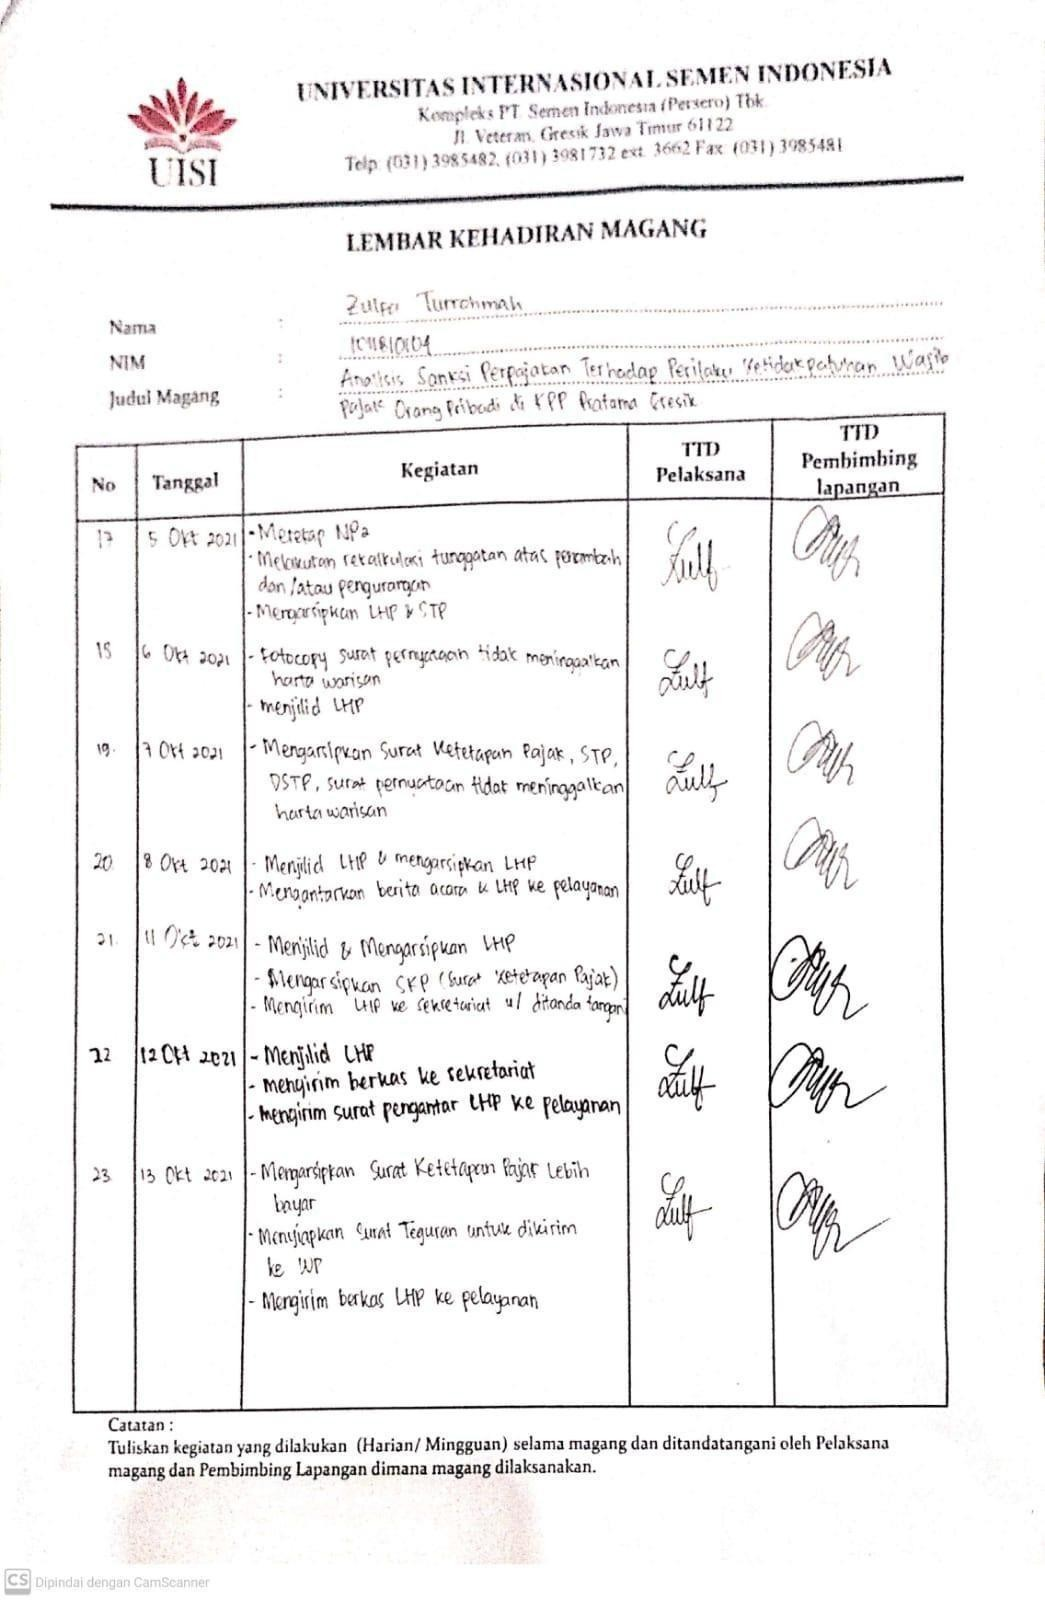 UNIVERSITAS INTERNASIONAL SEMEN INDONESIA
Kompleks PT. Semen Indonesia (Persero) Tbk.
Jl. Veteran, Gresik Jawa Timur 61122
Telp: (031) 3985482, (031) 3981732 ext. 3662 Fax: (031) 3985481
UISI
LEMBAR KEHADIRAN MAGANG
Nama : Zulfa Turrohmah
NIM :
Judul Magang : Analisis Sanksi Perpajakan Terhadap Perilaku Ketidakpatuhan Wajib
Pajak Orang Pribadi di KPP Pratama Gresik
No Tanggal Kegiatan TTD Pelaksana TTD Pembimbing lapangan
17 5 Okt 2021 - Merekap NP2
- Melakukan rekalkulasi tunggakan atas penambah
dan/atau pengurangan
- Mengarsipkan LHP & STP
18 6 Okt 2021 - Fotocopy surat pernyataan tidak meninggalkan
harta warisan
- menjilid LHP
19. 7 Okt 2021 - Mengarsipkan Surat Ketetapan Pajak, STP,
DSTP, surat pernyataan tidak meninggalkan
harta warisan
20. 8 Okt 2021 - Menjilid LHP & mengarsipkan LHP
- Mengantarkan berita acara & LHP ke pelayanan
21. 11 Okt 2021 - Menjilid & Mengarsipkan LHP
- Mengarsipkan SKP (Surat Ketetapan Pajak)
- Mengirim LHP ke sekretariat u/ ditanda tangani
22 12 Okt 2021 - Menjilid LHP
- mengirim berkas ke sekretariat
- mengirim surat pengantar LHP ke pelayanan
23. 13 Okt 2021 - Mengarsipkan Surat Ketetapan Pajak Lebih
bayar
- Menyiapkan Surat Teguran untuk dikirim
ke WP
- Mengirim berkas LHP ke pelayanan
Catatan :
Tuliskan kegiatan yang dilakukan (Harian/ Mingguan) selama magang dan ditandatangani oleh Pelaksana
magang dan Pembimbing Lapangan dimana magang dilaksanakan.
CS Dipindai dengan CamScanner